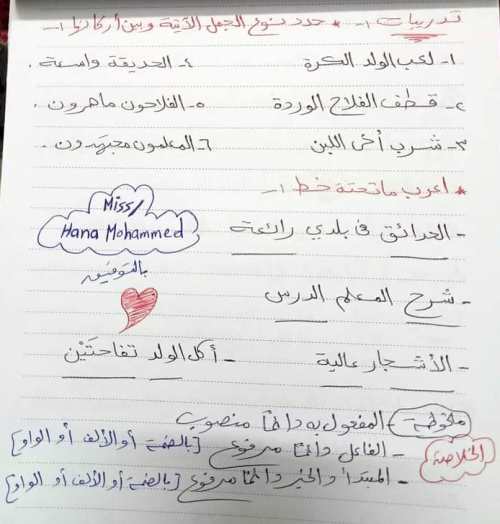 تدريبات :- * حدد نوع الجمل الآتية وبين أركانها :-
١- لعب الولد الكرة
٤- الحديقة واسعة .
٢- قطف الفلاح الوردة
٥- الفلاحون ماهرون .
٣- شرب أخى اللبن
٦- المعلمون مجتهدون .
* اعرب ماتحتة خط :-
Miss/
Hana Mohammed
بالتوفيق
- الحدائق فى بلدي رائعة
- شرح المعلم الدرس
- الأشجار عالية
- أكل الولد تفاحتَيْن
ملحوظة المفعول به دائماً منصوب
الخلاصة
- الفاعل دائماً مرفوع [بالضمة أو الألف أو الواو]
- المبتدأ والخبر دائماً مرفوع [بالضمة أو الألف أو الواو]